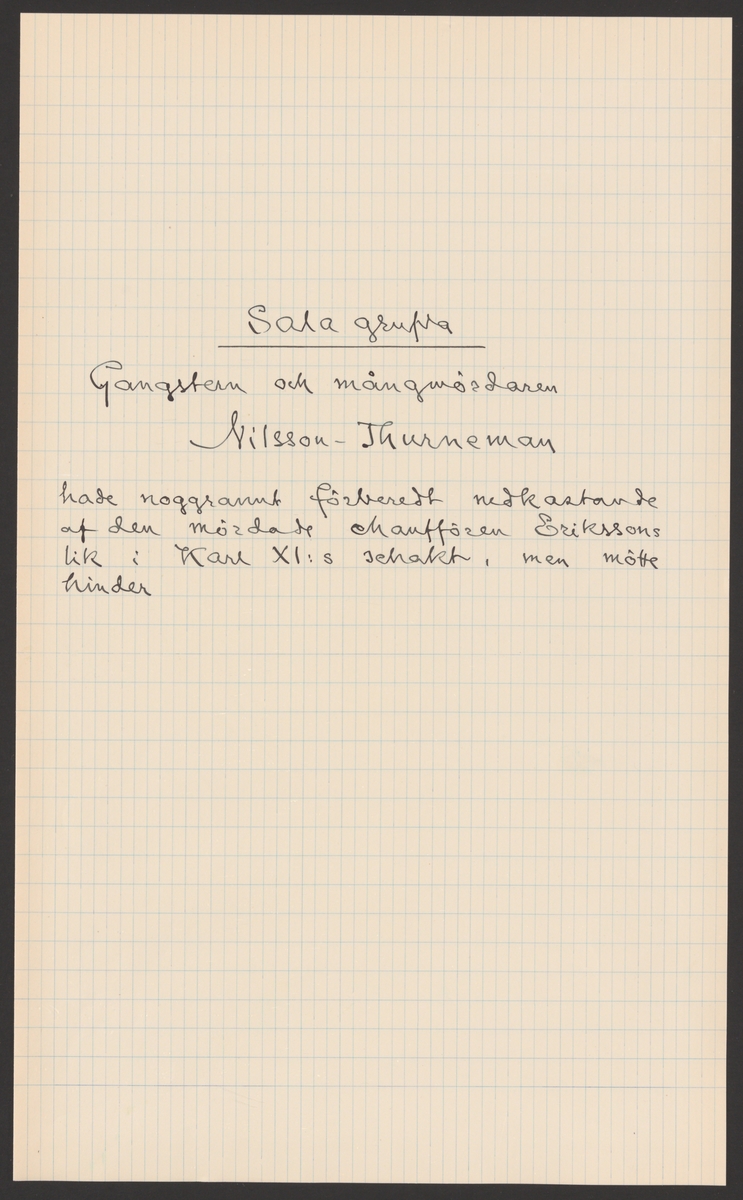 Sala grufva
Gangstern och mångmördaren
Nilsson-Thurneman
hade noggrannt förberedt nedkastande
af den mördade chauffören Erikssons
lik i Karl XI:s schakt, men mötte
hinder